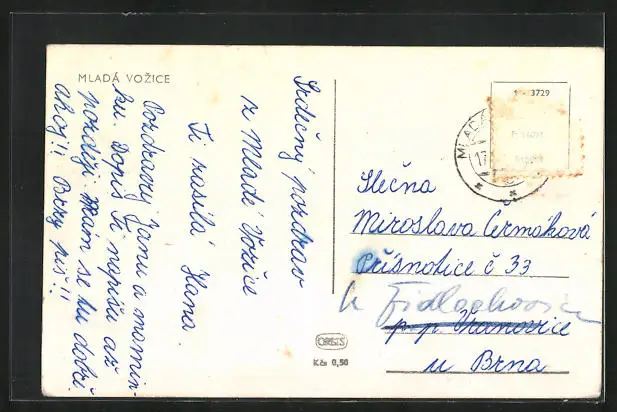 MLADÁ VOŽICE
Srdečný pozdrav
ze Mladé Vožice
Ti zasílá Hana.
Pozdravuj Janu a mamin-
ku. Dopis Ti napíšu až
později. Mám se tu dobře
ahoj!! Brzy piš!!
1 - 3729
MLADÁ
17
Slečna
Miroslava Čermáková
Přísnotice č 33
u Židlochovic
p.p. Vranovice
u Brna
ORBIS
Kčs 0,50